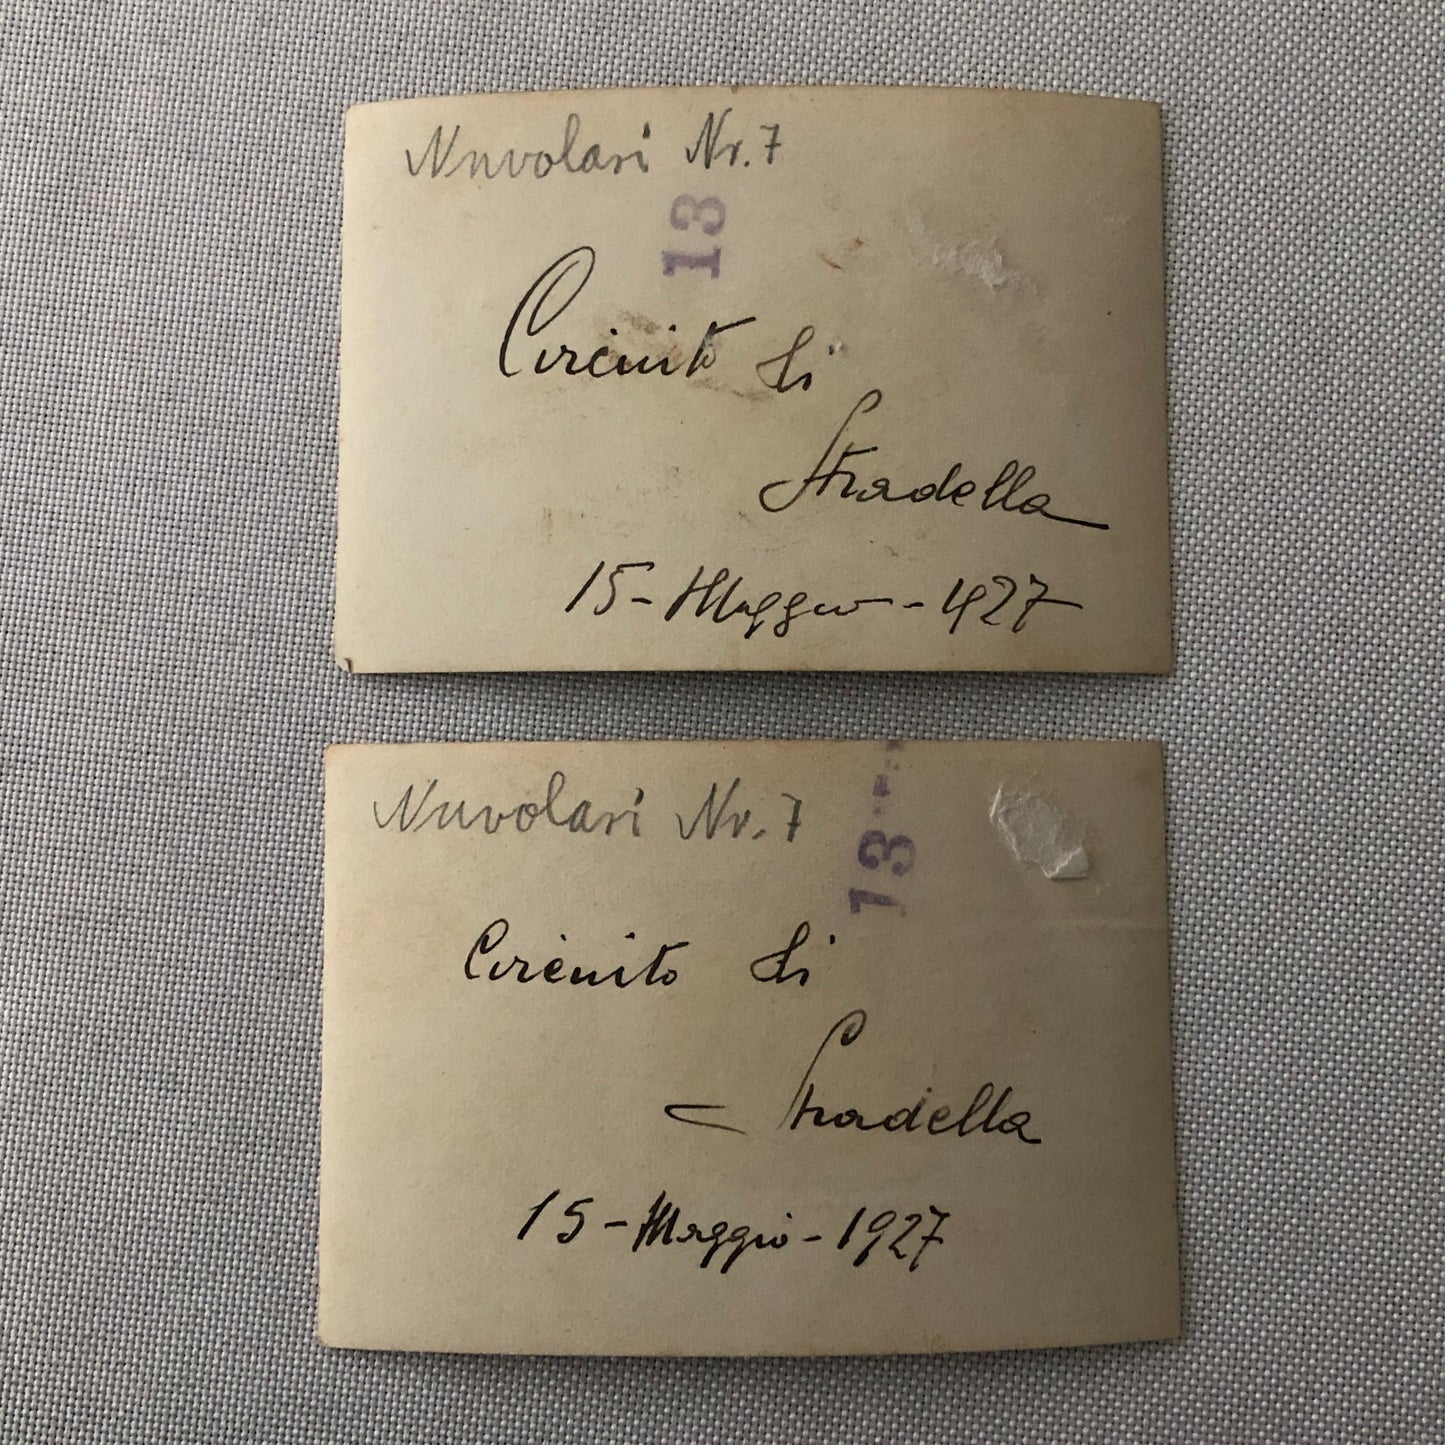 Nuvolari Nr. 7
13
Circuito di
Stradella
15 - Maggio - 927
Nuvolari Nr. 7
13
Circuito di
Stradella
15 - Maggio - 1927